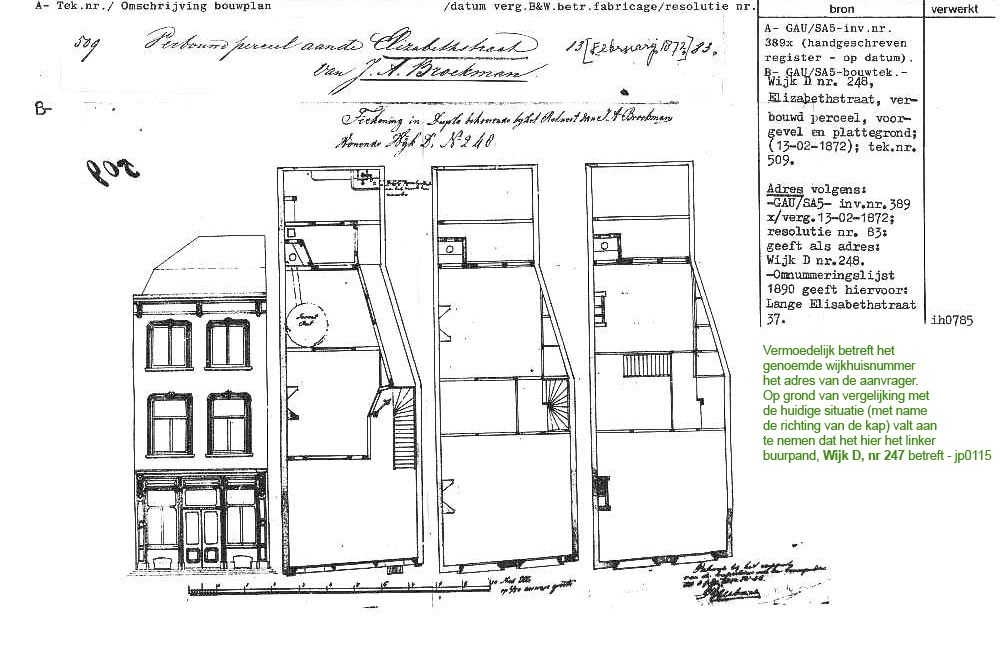 A- Tek.nr./ Omschrijving bouwplan /datum verg.B&W.betr.fabricage/resolutie nr. bron verwerkt
509 Verbouwd perceel aan de Elizabethstraat 13 [februarij 1872] 83.
van J. A. Broekman.
A- GAU/SA5-inv.nr.
389x (handgeschreven
register - op datum).
B- GAU/SA5-bouwtek.-
Wijk D nr. 248,
Elizabethstraat, ver-
bouwd perceel, voor-
gevel en plattegrond;
(13-02-1872); tek.nr.
509.
Adres volgens:
-GAU/SA5- inv.nr.389
x/verg.13-02-1872;
resolutie nr. 83:
geeft als adres:
Wijk D nr.248.
-Omnummeringslijst
1890 geeft hiervoor:
Lange Elisabethstraat
37.
ih0785
Vermoedelijk betreft het
genoemde wijkhuisnummer
het adres van de aanvrager.
Op grond van vergelijking met
de huidige situatie (met name
de richting van de kap) valt aan
te nemen dat het hier het linker
buurpand, Wijk D, nr 247 betreft - jp0115
B-
Teekening in Duplo behoorende bij het Adres van J A Broekman
Wonende Wijk D. No 248
509